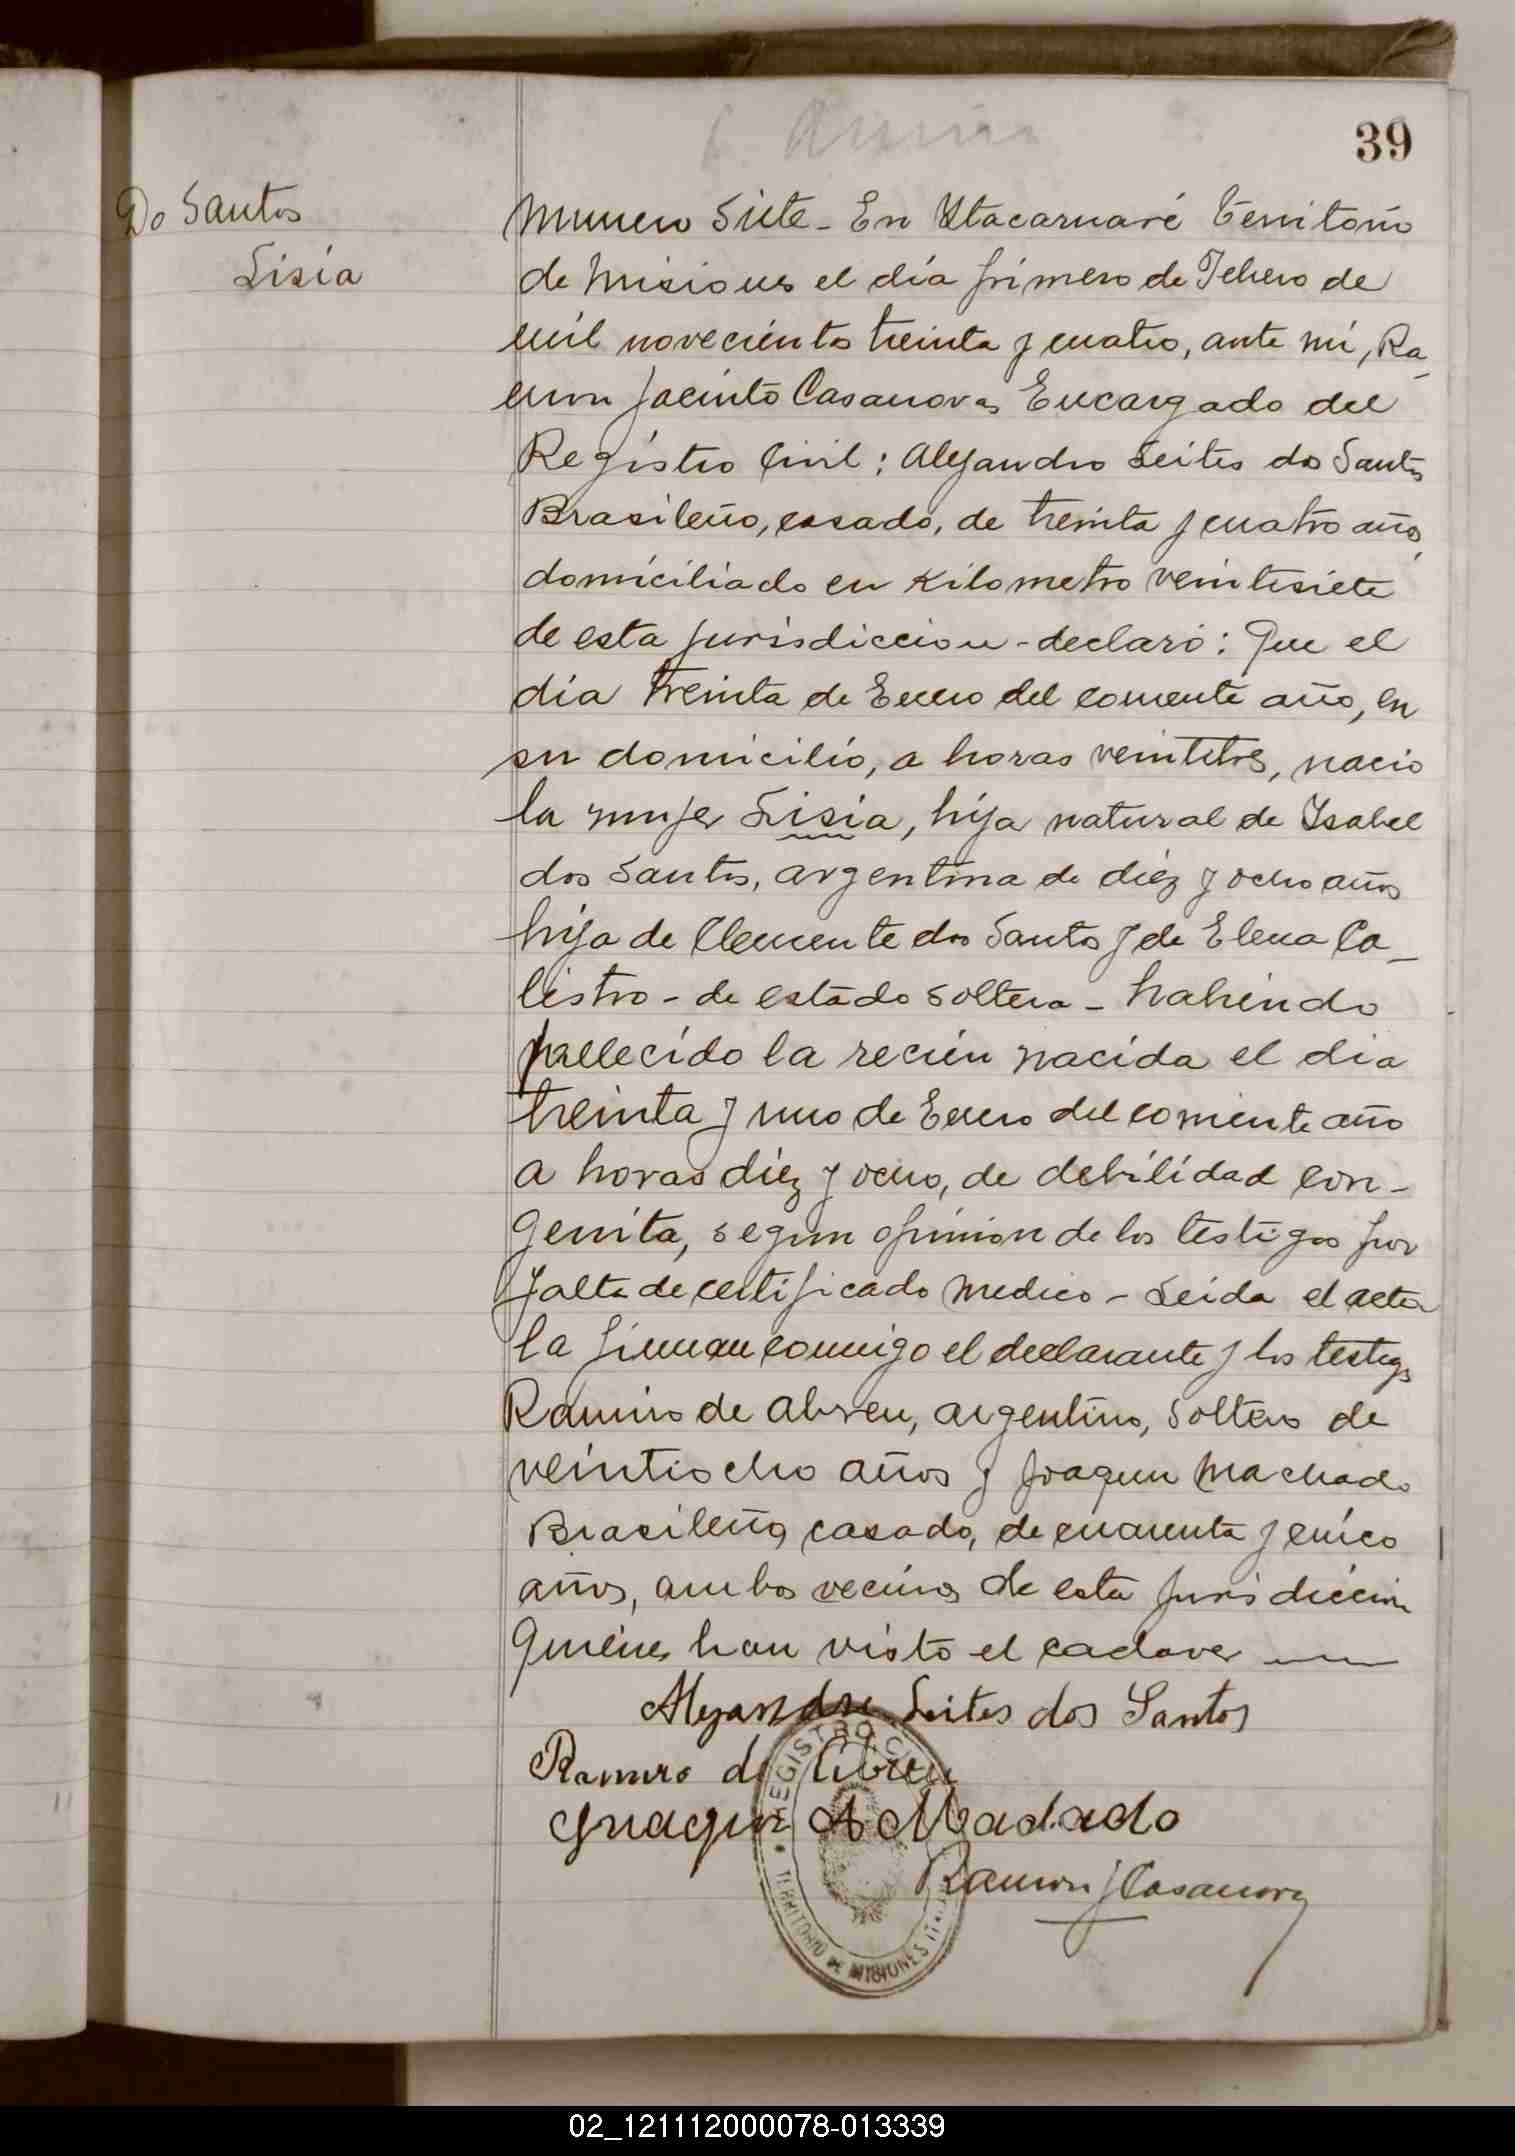 39
Do Santos
Lisia
Numero Siete - En Itacaruaré Territorio
de Misiones el día primero de Febrero de
mil novecientos treinta y cuatro, ante mi, Ra_
mon Jacinto Casanova, Encargado del
Registro Civil: Alejandro Leites dos Santos
Brasileño, casado, de treinta y cuatro años,
domiciliado en Kilometro veintisiete
de esta jurisdiccion - declaró: Que el
dia treinta de Enero del corriente año, en
su domicilio, a horas veintitres, nacio
la mujer Lisia, hija natural de Isabel
dos Santos, argentina de diez y ocho años
hija de Clemente dos Santos y de Elena Ca_
listro - de estado soltera - habiendo
fallecido la recien nacida el dia
treinta y uno de Enero del corriente año
a horas diez y ocho, de debilidad con-
genita, segun opinion de los testigos por
falta de certificado medico - Leida el acta
la firman conmigo el declarante y los testigos
Ramiro de Abreu, argentino, soltero de
veintiocho años y Joaquin Machado
Brasileño, casado, de cuarenta y cinco
años, ambos vecinos de esta jurisdiccion
Quienes han visto el cadaver
Alejandro Leites dos Santos
Ramiro de Abreu
Juaquin A Machado
Ramon J Casanova
REGISTRO CIVIL
TERRITORIO DE MISIONES
02_121112000078-013339